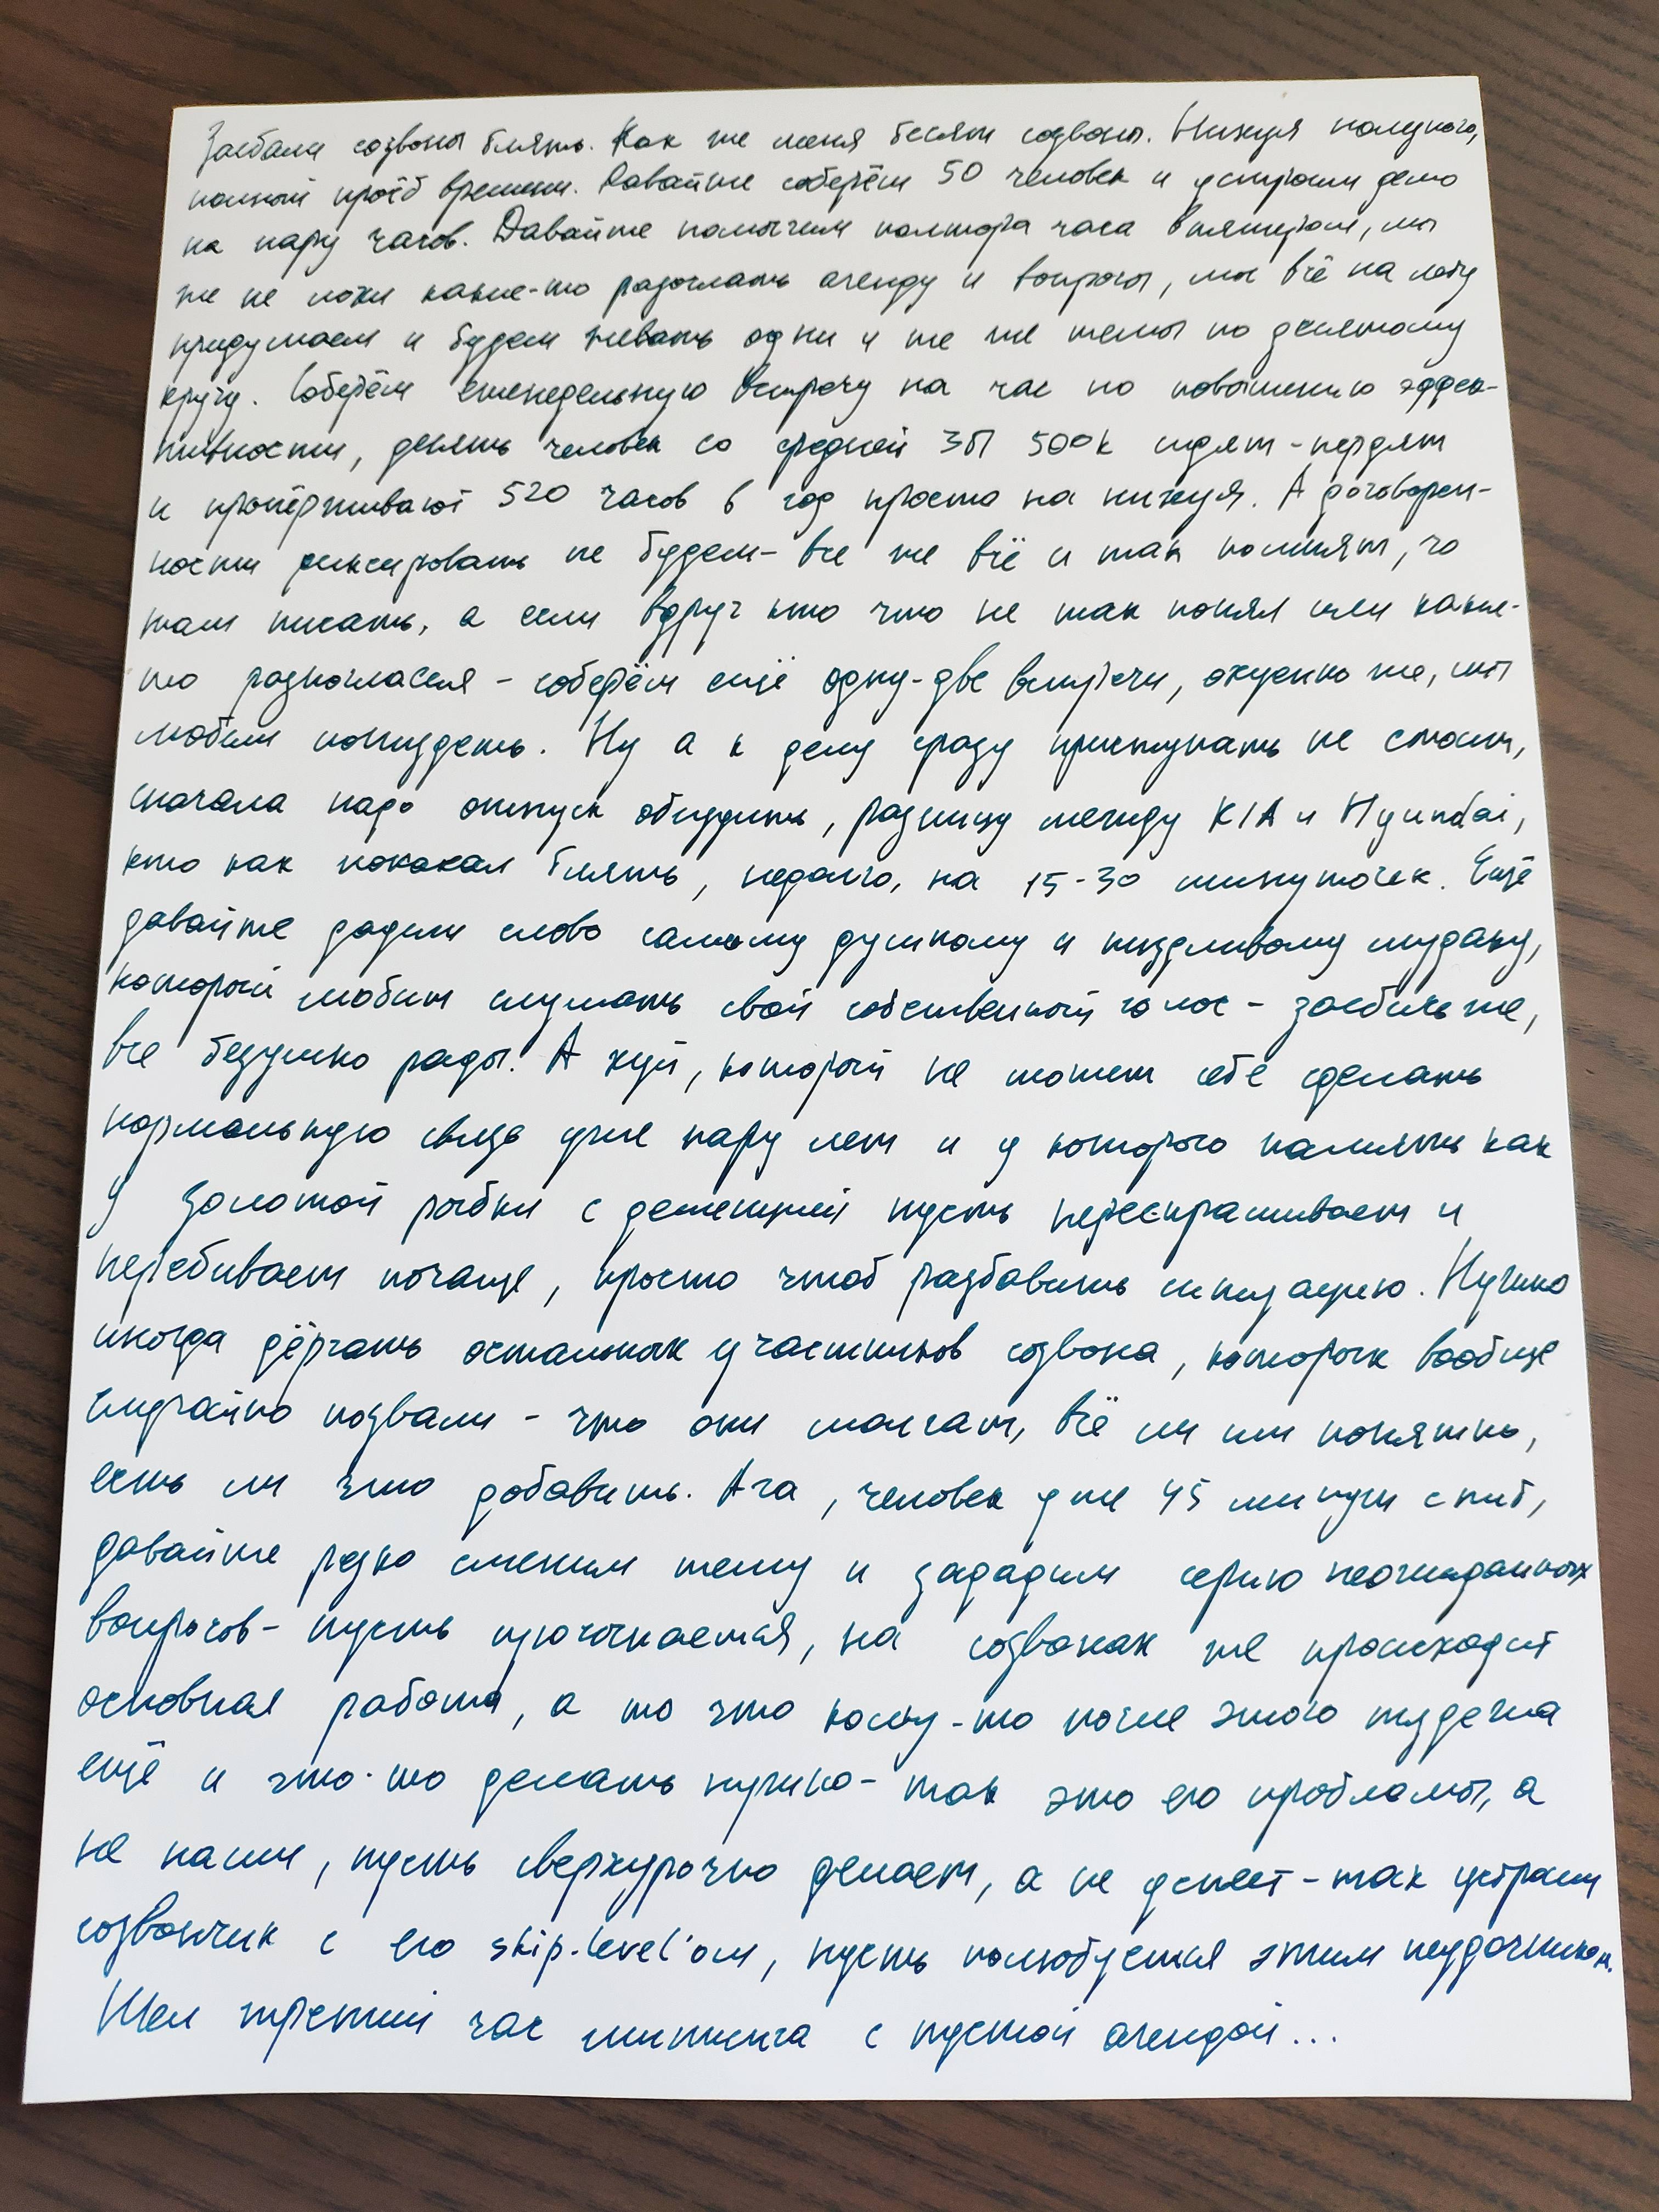 Заебали созвоны блять. Как же меня бесят созвоны. Нихуя полезного,
полный проёб времени. Давайте соберём 50 человек и устроим демо
на пару часов. Давайте помычим полтора часа впятером, мы
же не лохи какие-то рассылать агенду и вопросы, мы всё на ходу
придумаем и будем жевать одни и те же темы по десятому
кругу. Соберём еженедельную встречу на час по повышению эффек-
тивности, десять человек со средней ЗП 500к сидят-пердят
и пропёрживают 520 часов в год просто на нихуя. А договорен-
ности фиксировать не будем- все же всё и так помнят, чо
там писать, а если вдруг кто что не так понял или какие-
то разногласия - соберём ещё одну-две встречи, охуенно же, мы
любим попиздеть. Ну а к делу сразу приступать не стоит,
сначала надо отпуск обсудить, разницу между KIA и Hyundai,
кто как покакал блять, недолго, на 15-30 минуточек. Ещё
давайте дадим слово самому душному и пиздливому мудаку,
который любит слушать свой собственный голос - заебись же,
все безумно рады! А хуй, который не может себе сделать
нормальную связь уже пару лет и у которого память как
у золотой рыбки с деменцией пусть переспрашивает и
перебивает почаще, просто чтоб разбавить ситуацию. Нужно
иногда дёргать остальных участников созвона, которых вообще
случайно позвали - что они молчат, всё ли им понятно,
есть ли что добавить. Ага, человек уже 45 минут спит,
давайте резко сменим тему и зададим серию неожиданных
вопросов- пусть прочухается, на созвонах же происходит
основная работа, а то что кому-то после этого пиздежа
ещё и что-то делать нужно- так это его проблемы, а
не наши, пусть сверхурочно делает, а не успеет - так устроим
созвончик с его skip-level'ом, пусть полюбуется этим неудачником.
Шел третий час митинга с пустой агендой...